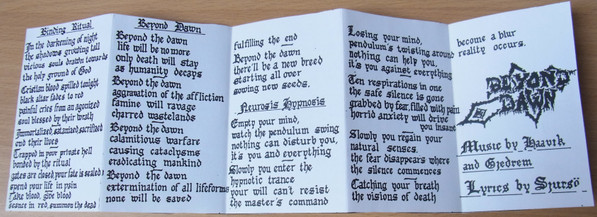 Binding Ritual
In the darkening of night
the shadows growing tall
the holy ground of God
Cristian blood spilled twilight
black altar fades to red
painful cries from an agonized
soul blessed by their wrath
Immortalized, satanised, sacrificed
end their lives
Trapped in your private hell
bonded by the ritual
gates are closed your fate is sealed
spend your life in pain
Take blood, give blood
seance in red, summon the dead!
Beyond Dawn
Beyond the dawn
life will be no more
only death will stay
as humanity decays
Beyond the Dawn
aggravation of the affliction
famine will ravage
charred wastelands
Beyond the Dawn
calamitious warfare
causing cataclysms
eradicating mankind
Beyond the Dawn
extermination of all lifeforms
none will be saved
fulfilling the end
Beyond the dawn
there'll be a new breed
starting all over
sowing new seeds.
Neurosis Hypnosis
Empty your mind,
watch the pendulum swing
nothing can disturb you,
it's you and everything
Slowly you enter the
hypnotic trance
your will can't resist
the master's command
Losing your mind,
pendulum's twisting around
nothing can help you,
it's you against everything
Ten respirations in one
the safe silence is gone
grabbed by fear, filled with pain
horrid anxiety will drive
you insane
Slowly you regain your
natural senses.
the fear disappears where
the silence commences
Catching your breath
the visions of death
become a blur
reality occurs.
BEYOND
DAWN
Music by Haavik
and Gjedrem
Lyrics by Sjursø